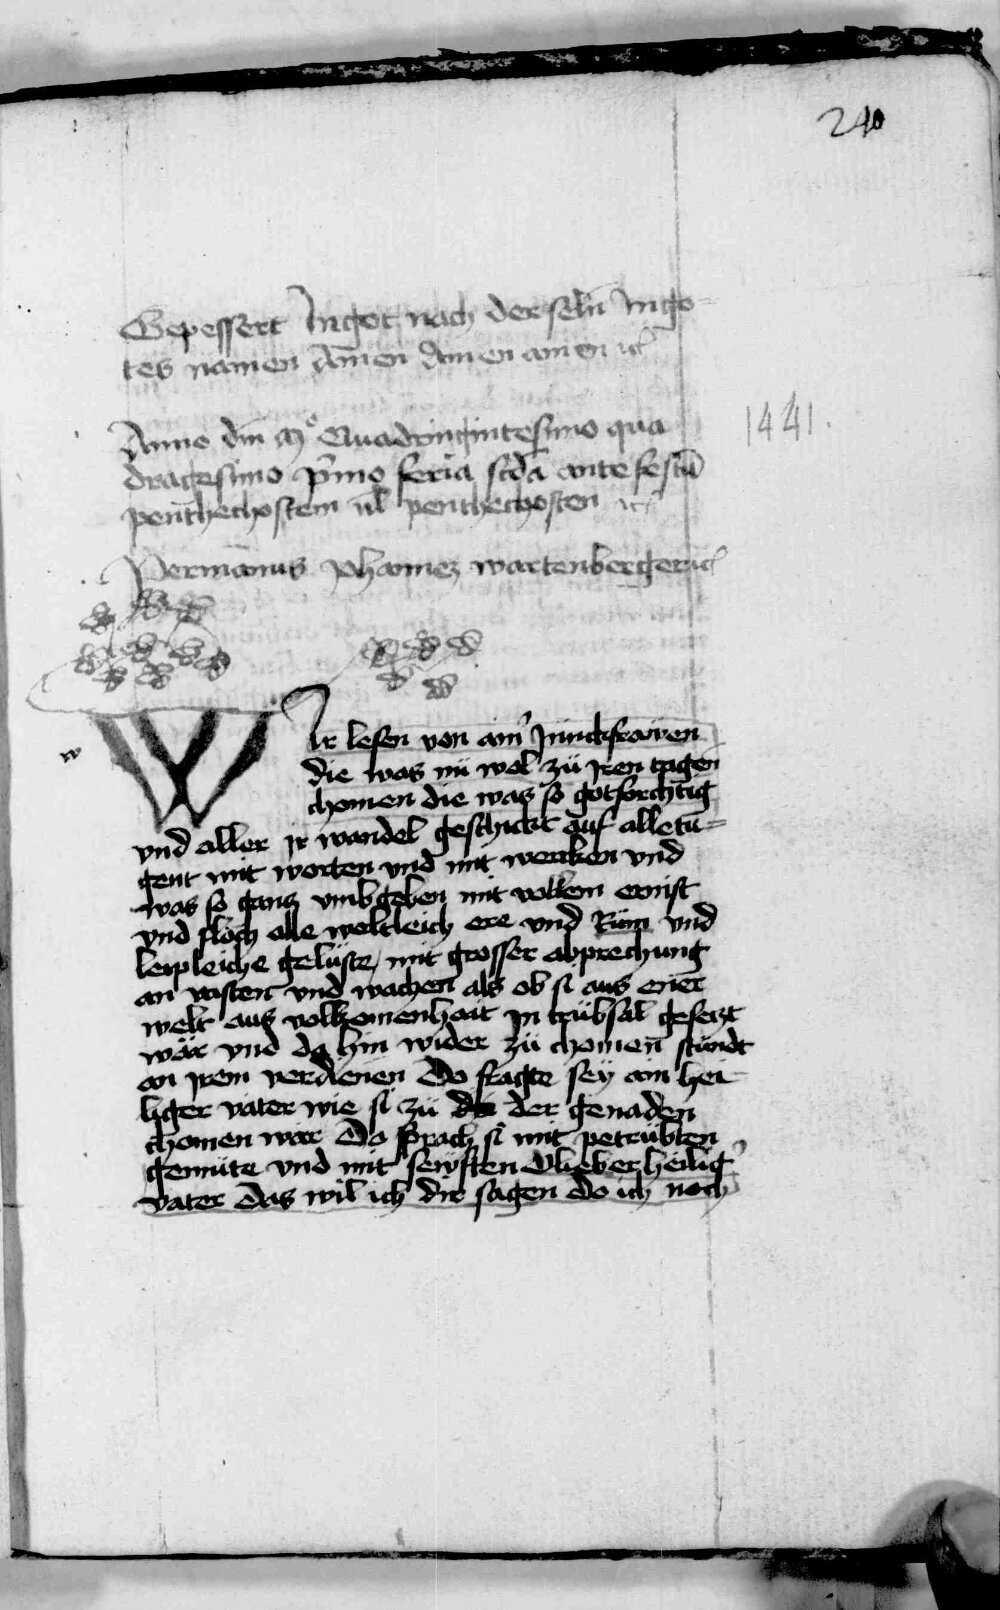 240
Gepessert In got nach der seln̄ In go-
tes namen Amen Amen amen ꝛc
Anno dn̄i Mº Quadringintesimo qua
dragesimo p̃mo feria scd̄a ante festū
penthechostem vl̄ penthechosten ꝛc
1441.
Permanus Johannez wartenberger ꝛc
w
WIr lesen von aim̄ Junckfrawen
die was nü wol zü Jren tagen
chomen die was so gotforchtig
vnd aller jr wandel geschickt auf alle tu-
gent mit worten vnd mit wercken vnd
was so gancz vmbgeben mit vollem ernist
vnd floch alle weltleich ere vnd Rüm vnd
leipleiche gelüste, mit grosser abprechung
an vasten vnd wachen als ob si aus ener
welt aus volkomenhait In trübsal gesetzt
wär vnd da hin wider zü chomen stündt
an jrem verdienen Do fragte sey ain hei
liger vater wie si zü der genaden
chomen war Do sprach si mit petrübten
gemüte vnd mit sewften O lieber heilig̃
vater das wil ich dir sagen do ich noch